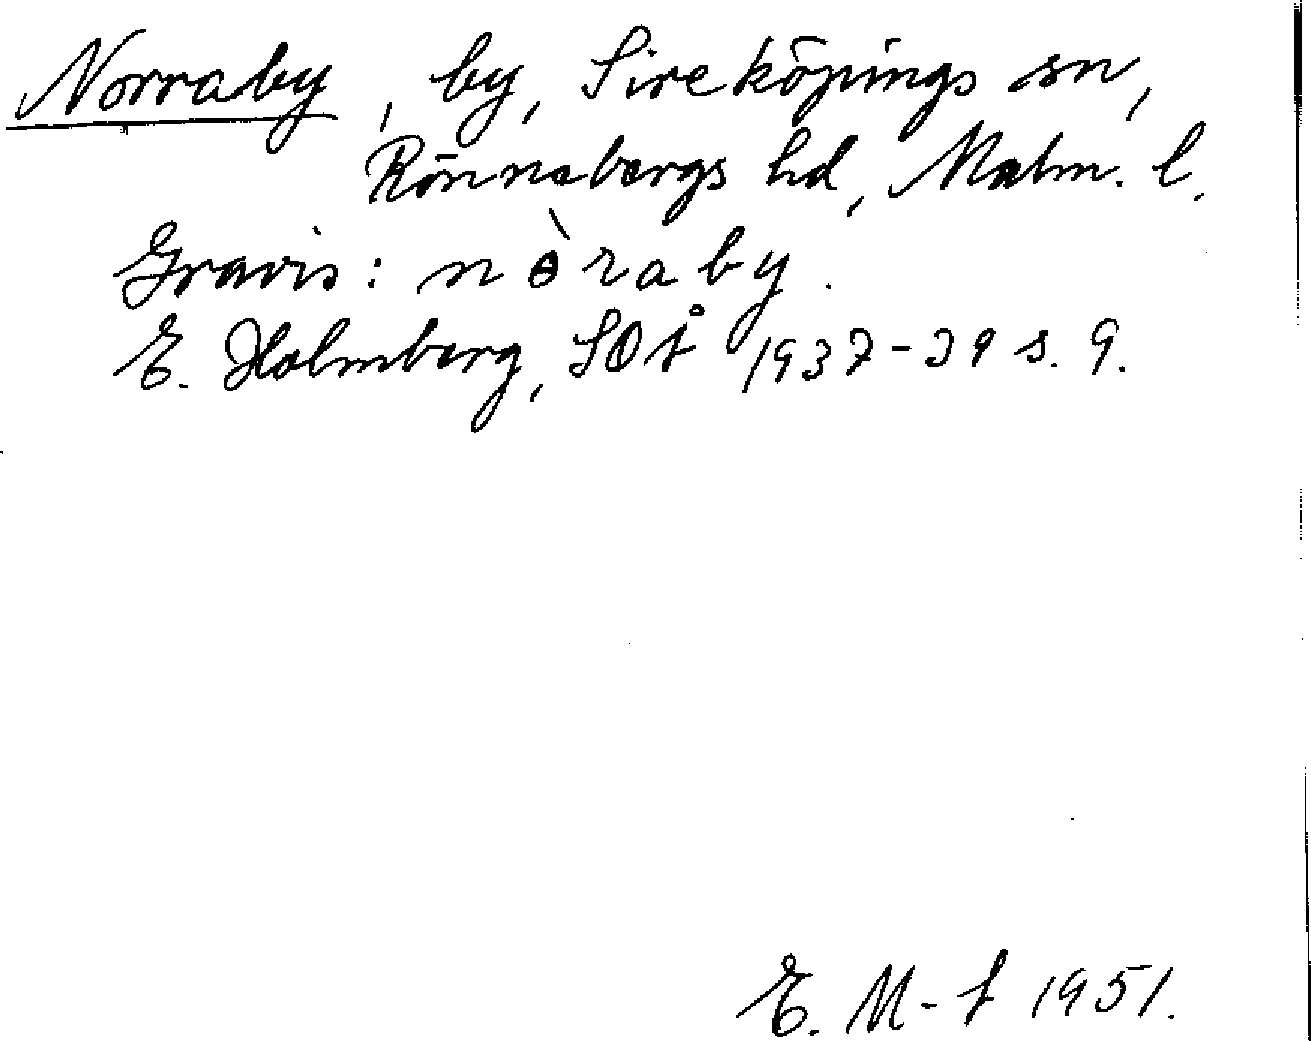 Norraby, by, Sireköpings sn,
Rönnebergs hd, Malm. l.
Gravis: nɵ̀raby.
E. Holmberg, SOÅ 1937-39 s. 9.
E. M-t 1951.